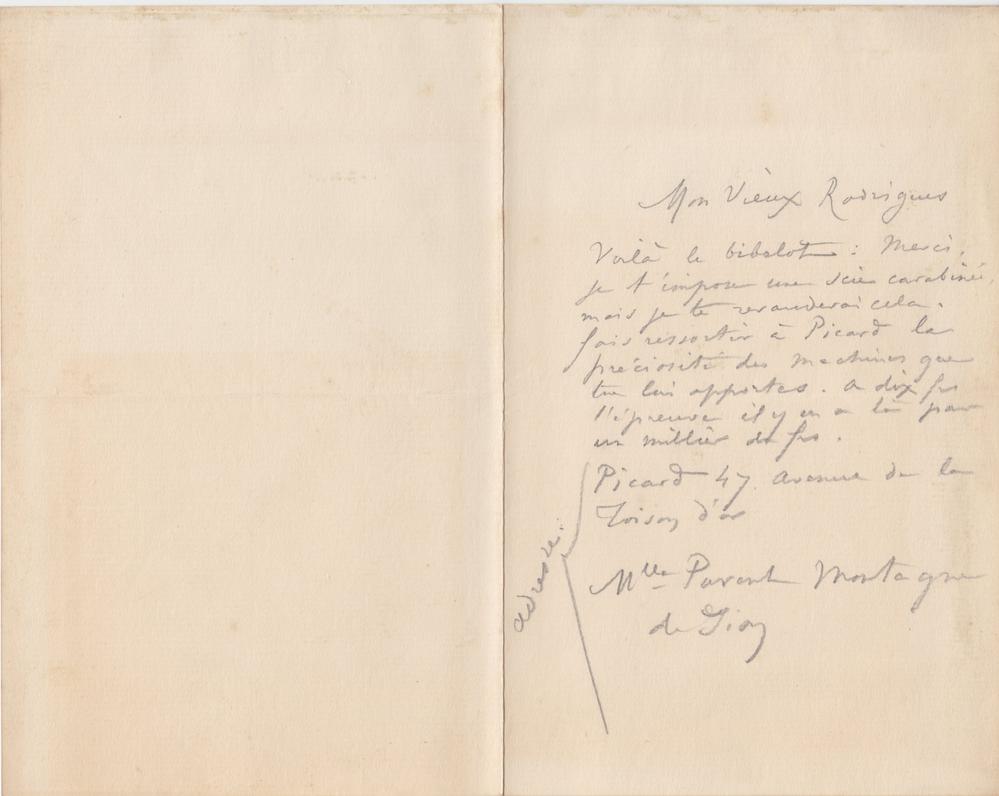 Mon Vieux Rodrigues
Voilà le bibelot : Merci,
je t'impose une scie carabinée,
mais je te revauderai cela.
fais ressortir à Picard la
préciosité des machines que
tu lui apportes. a dix frs
l'épreuve il y en a là pour
un millier de frs.
adresse :
Picard 47 avenue de la
Toison d'or
Mlle Parent Montagne
de Sion